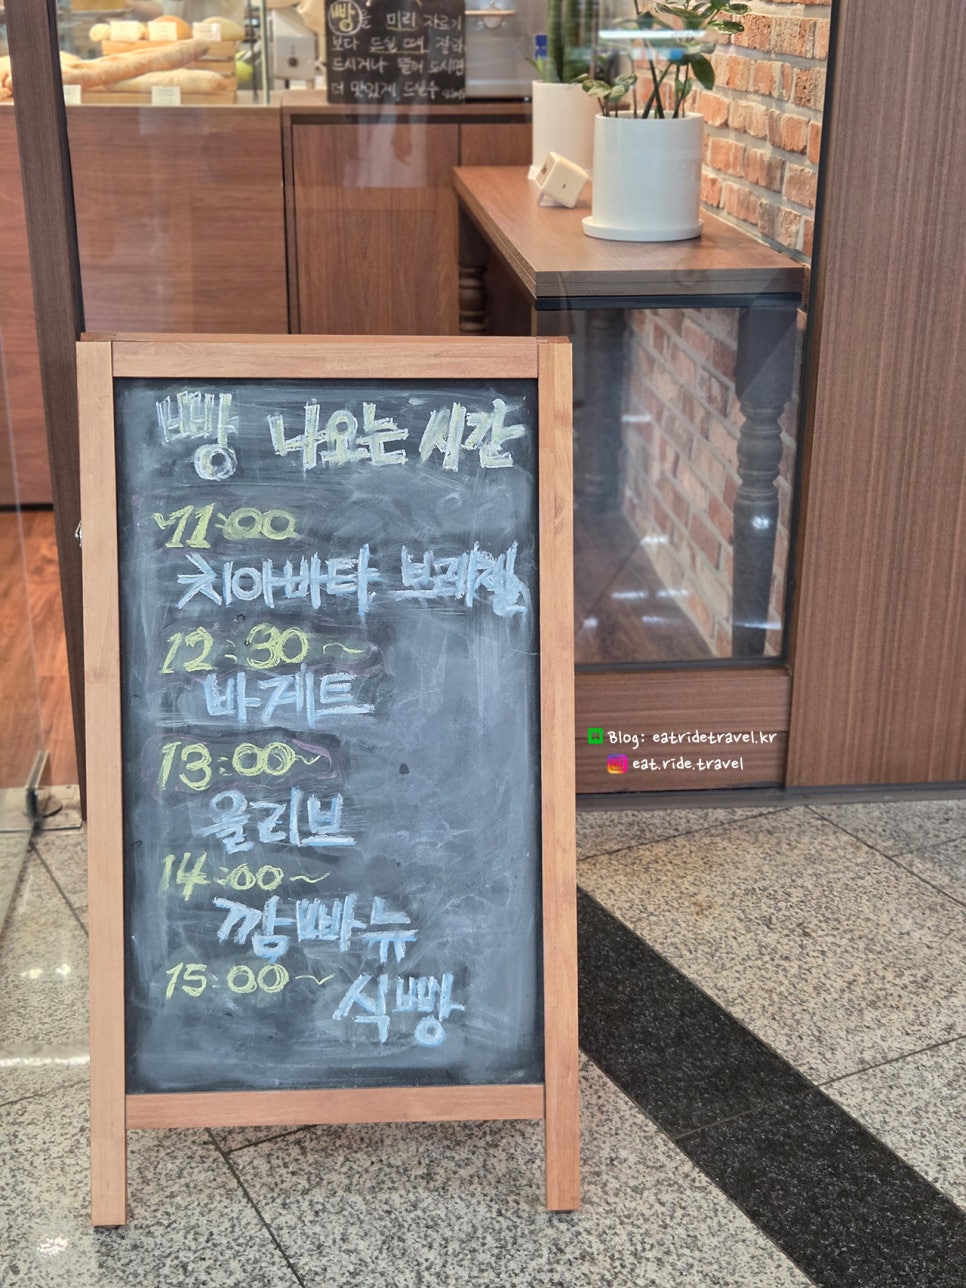 빵은 미리 자르기
보다 드실 때, 잘라
드시거나 뜯어 드시면
더 맛있게 드실수
빵 나오는 시간
11:00
치아바타 브레첼
12:30~
바게트
13:00~
올리브
14:00~
깜빠뉴
15:00~
식빵
Blog: eatridetravel.kr
eat.ride.travel